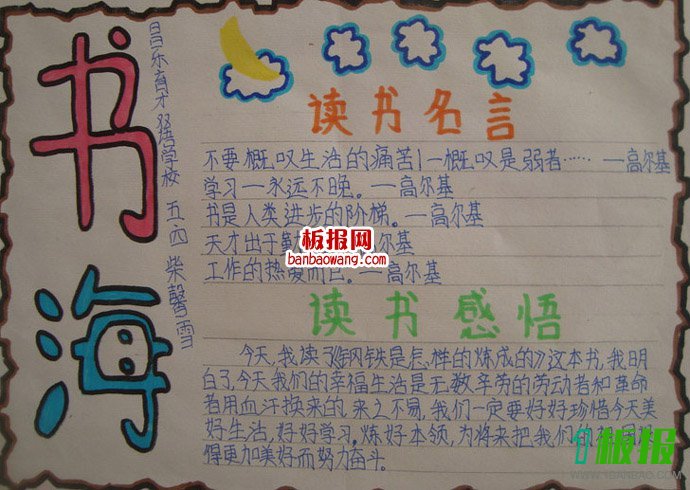 书海
昌乐育才双语学校 五.四 柴馨雪
读书名言
不要概叹生活的痛苦!一概叹是弱者……——高尔基
学习一永远不晚。——高尔基
书是人类进步的阶梯。——高尔基
天才出于勤 尔基
工作的热爱而已。——高尔基
板报网
banbaowang.com
读书感悟
今天,我读了《钢铁是怎样的炼成的》这本书,我明
白了,今天我们的幸福生活是无数辛劳的劳动者和革命
者用血汗换来的,来之不易,我们一定要好好珍惜今天美
好生活,好好学习,炼好本领,为将来把我们
得更加美好而努力奋斗。
1板报
WWW.1BANBAO.COM